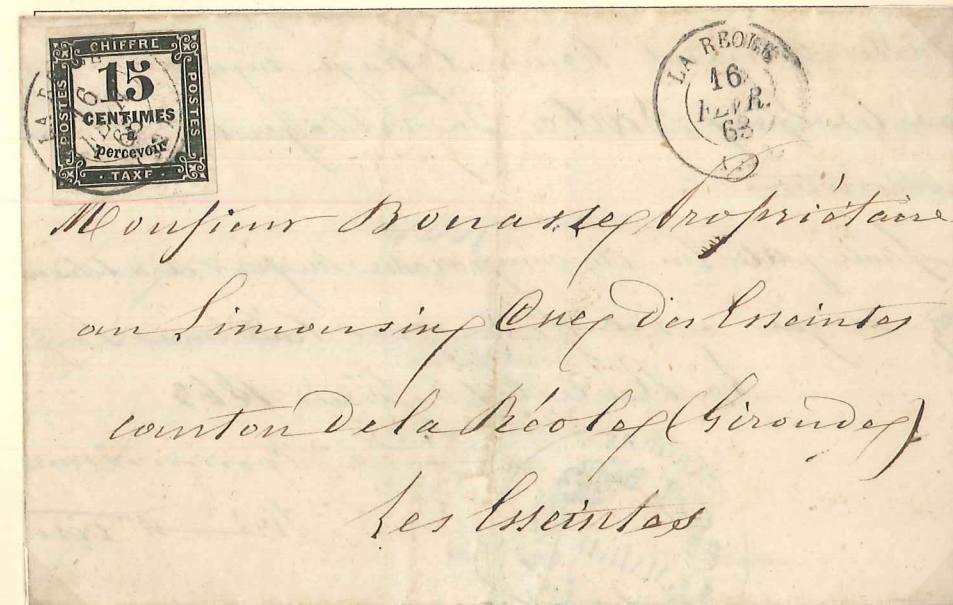 CHIFFRE
POSTES
15
CENTIMES
à
percevoir
POSTES
TAXE
LA REOLE
16
FEVR.
63
Monsieur Bonasse Propriétaire
au Limousin Cne des Esseintes
canton de la Réole (Gironde)
Les Esseintes